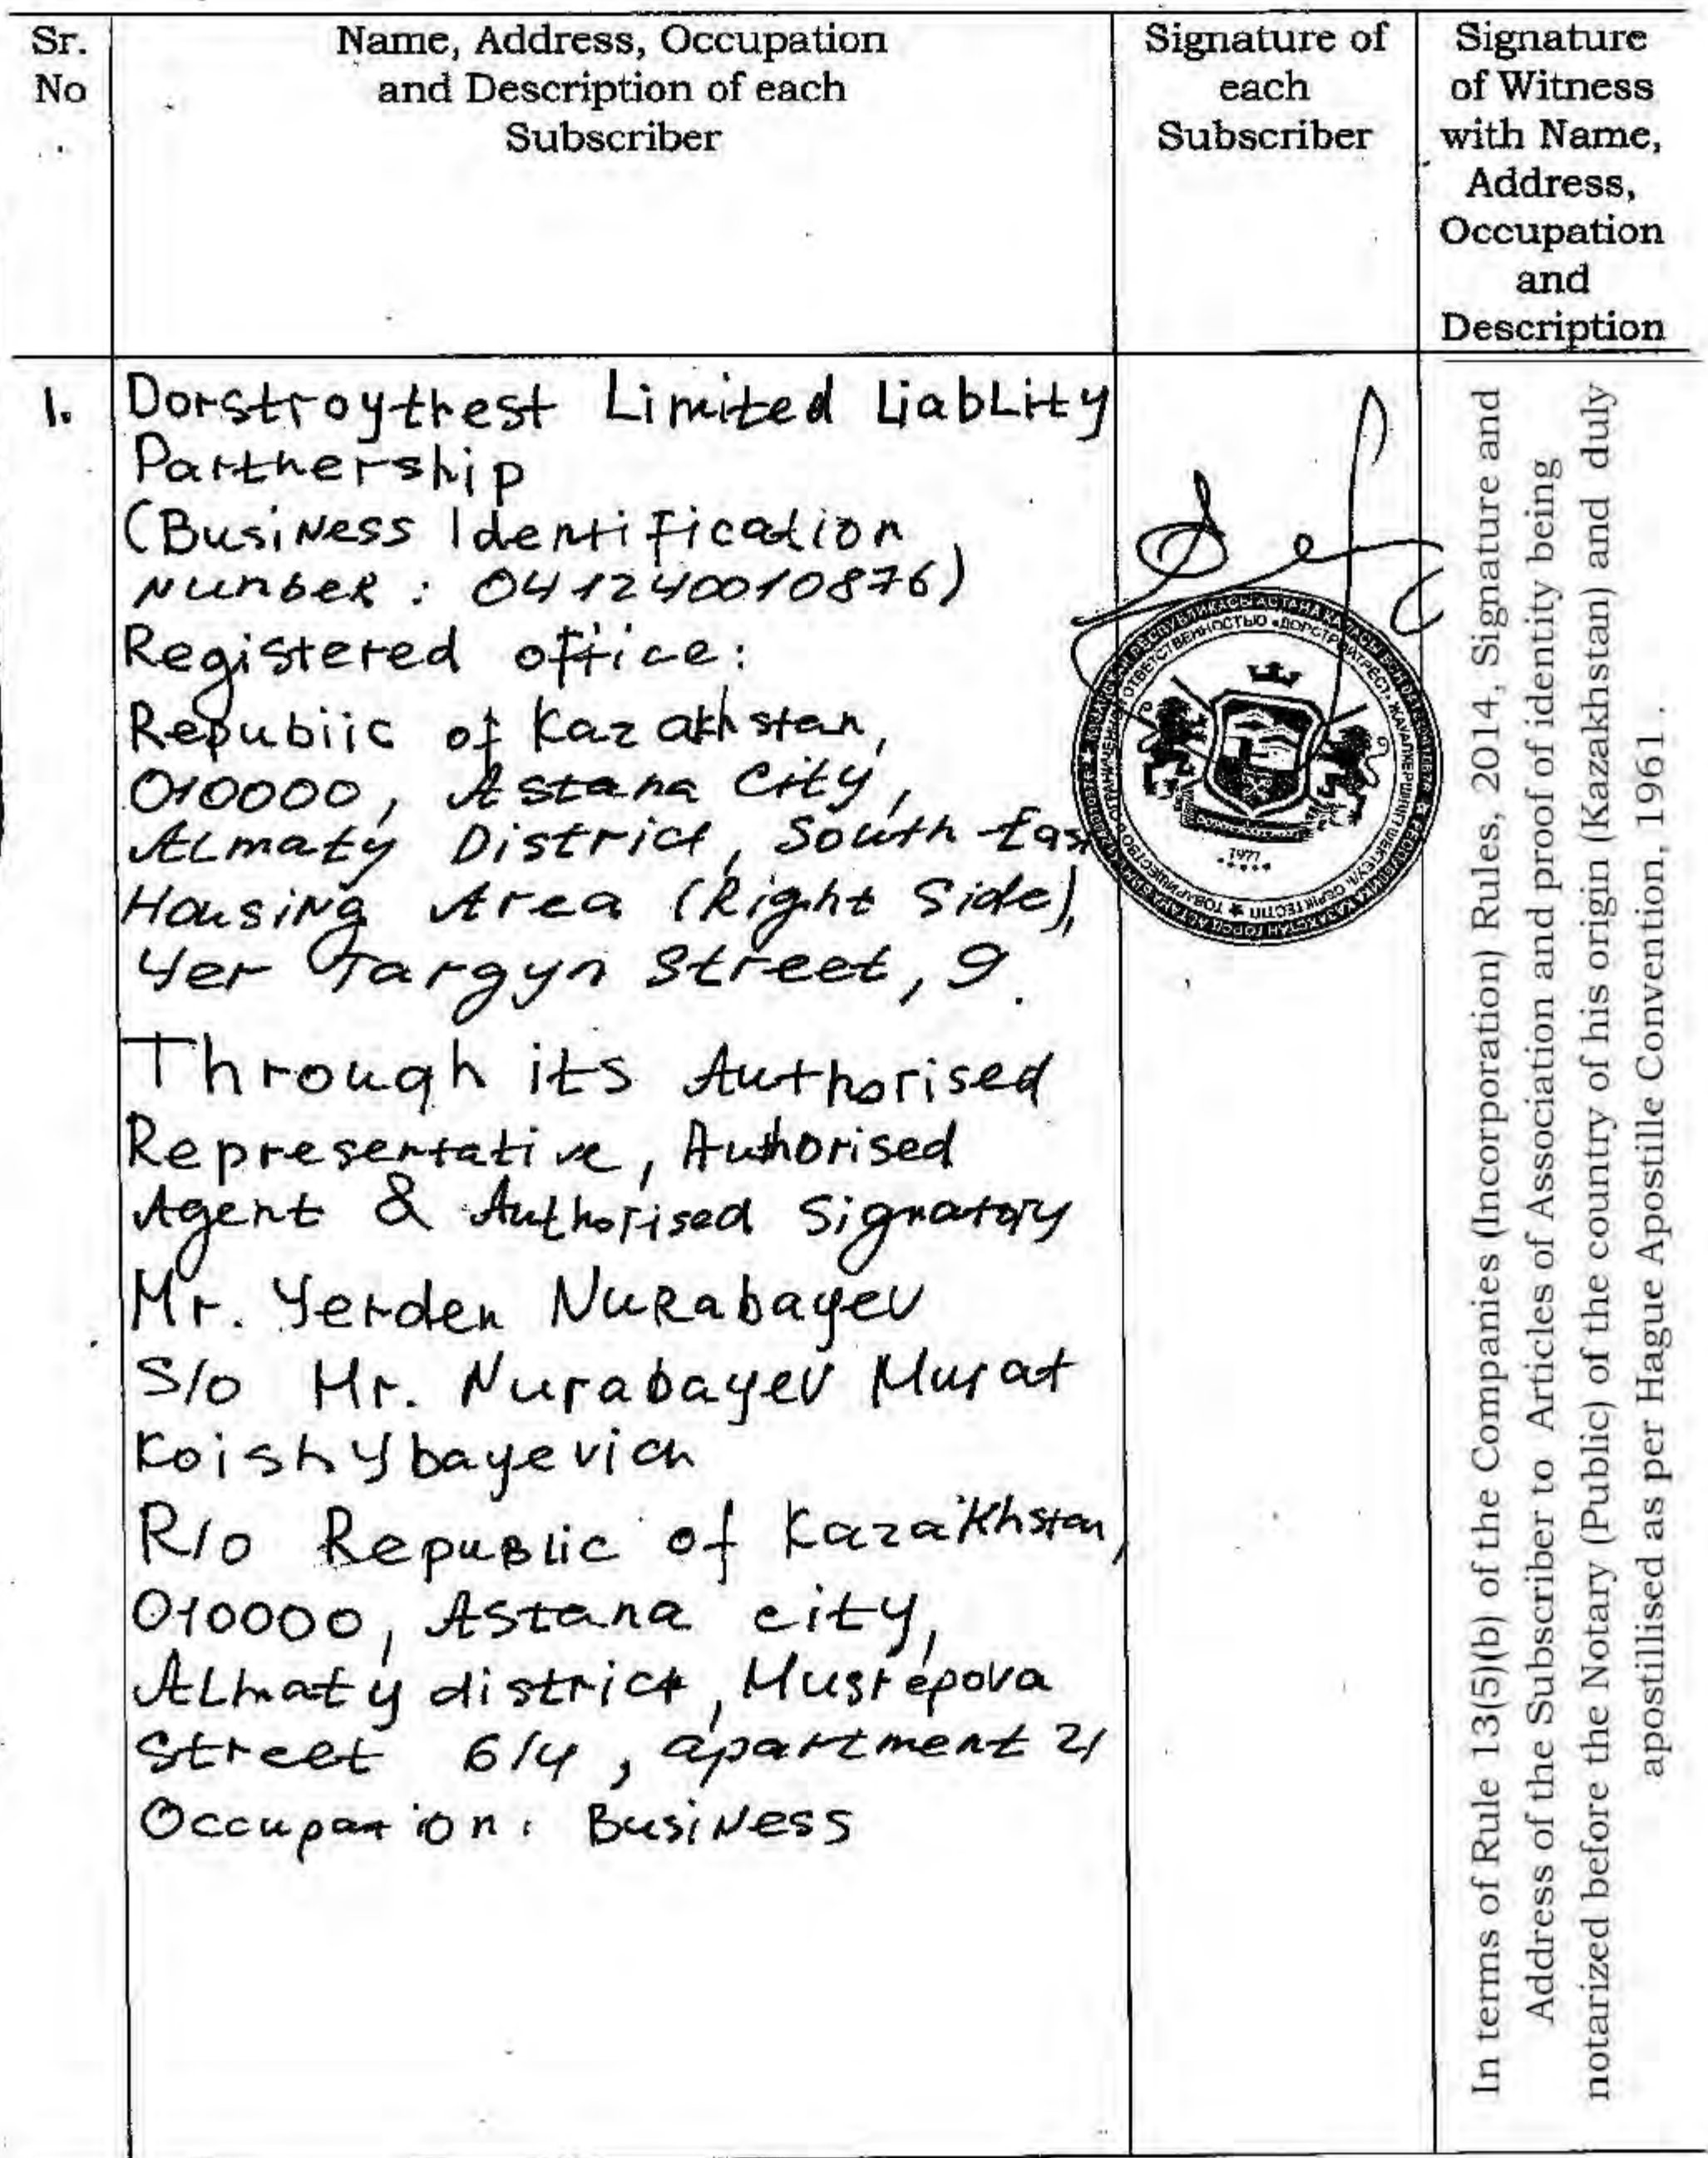 Sr.
No
.
Name, Address, Occupation
and Description of each
Subscriber
Signature of
each
Subscriber
Signature
of Witness
with Name,
Address,
Occupation
and
Description
1.
Dorstroythest Limited LiabLity
Partnership
(Business Identification
Number : 041240010876)
Registered office:
Repubiic of Kazakhstan,
010000, Astana City,
ALmaty District, South-East
Housing Area (Right Side),
Yer Targyn Street, 9.
Through its Authorised
Representative, Authorised
Agent & Authorised Signatory
Mr. Yerden Nurabayev
S/o Mr. Nurabayev Murat
Koishybayevich
R/o Republic of Kazakhstan,
010000, Astana city,
ALmaty district, Musrepova
Street 6/4, apartment 21
Occupation: Business
ОТВЕТСТВЕННОСТЬЮ «ДОРСТРОЙТРЕСТ»
1977
In terms of Rule 13(5)(b) of the Companies (Incorporation) Rules, 2014, Signature and
Address of the Subscriber to Articles of Association and proof of identity being
notarized before the Notary (Public) of the country of his origin (Kazakhstan) and duly
apostillised as per Hague Apostille Convention, 1961 .